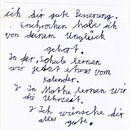 ich dir gute Besserung.
Erschrocken habe ich
von deinem Unglück
gehört.
In der Schule lernen
wir jetzt etwas vom
Kalender.
In Mathe lernen wir
die Uhrzeit.
Ich wünsche dir
alles gute.